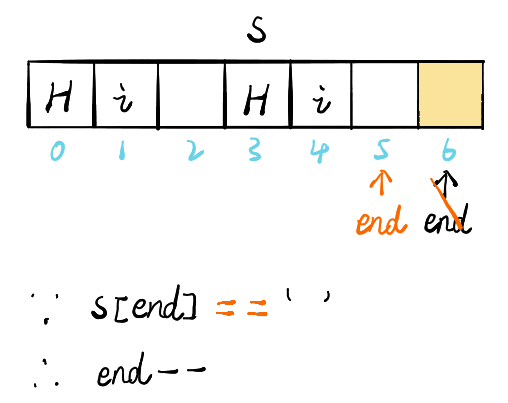 S
H i H i
0 1 2 3 4 5 6
end end
∵ s[end] == ' '
∴ end--